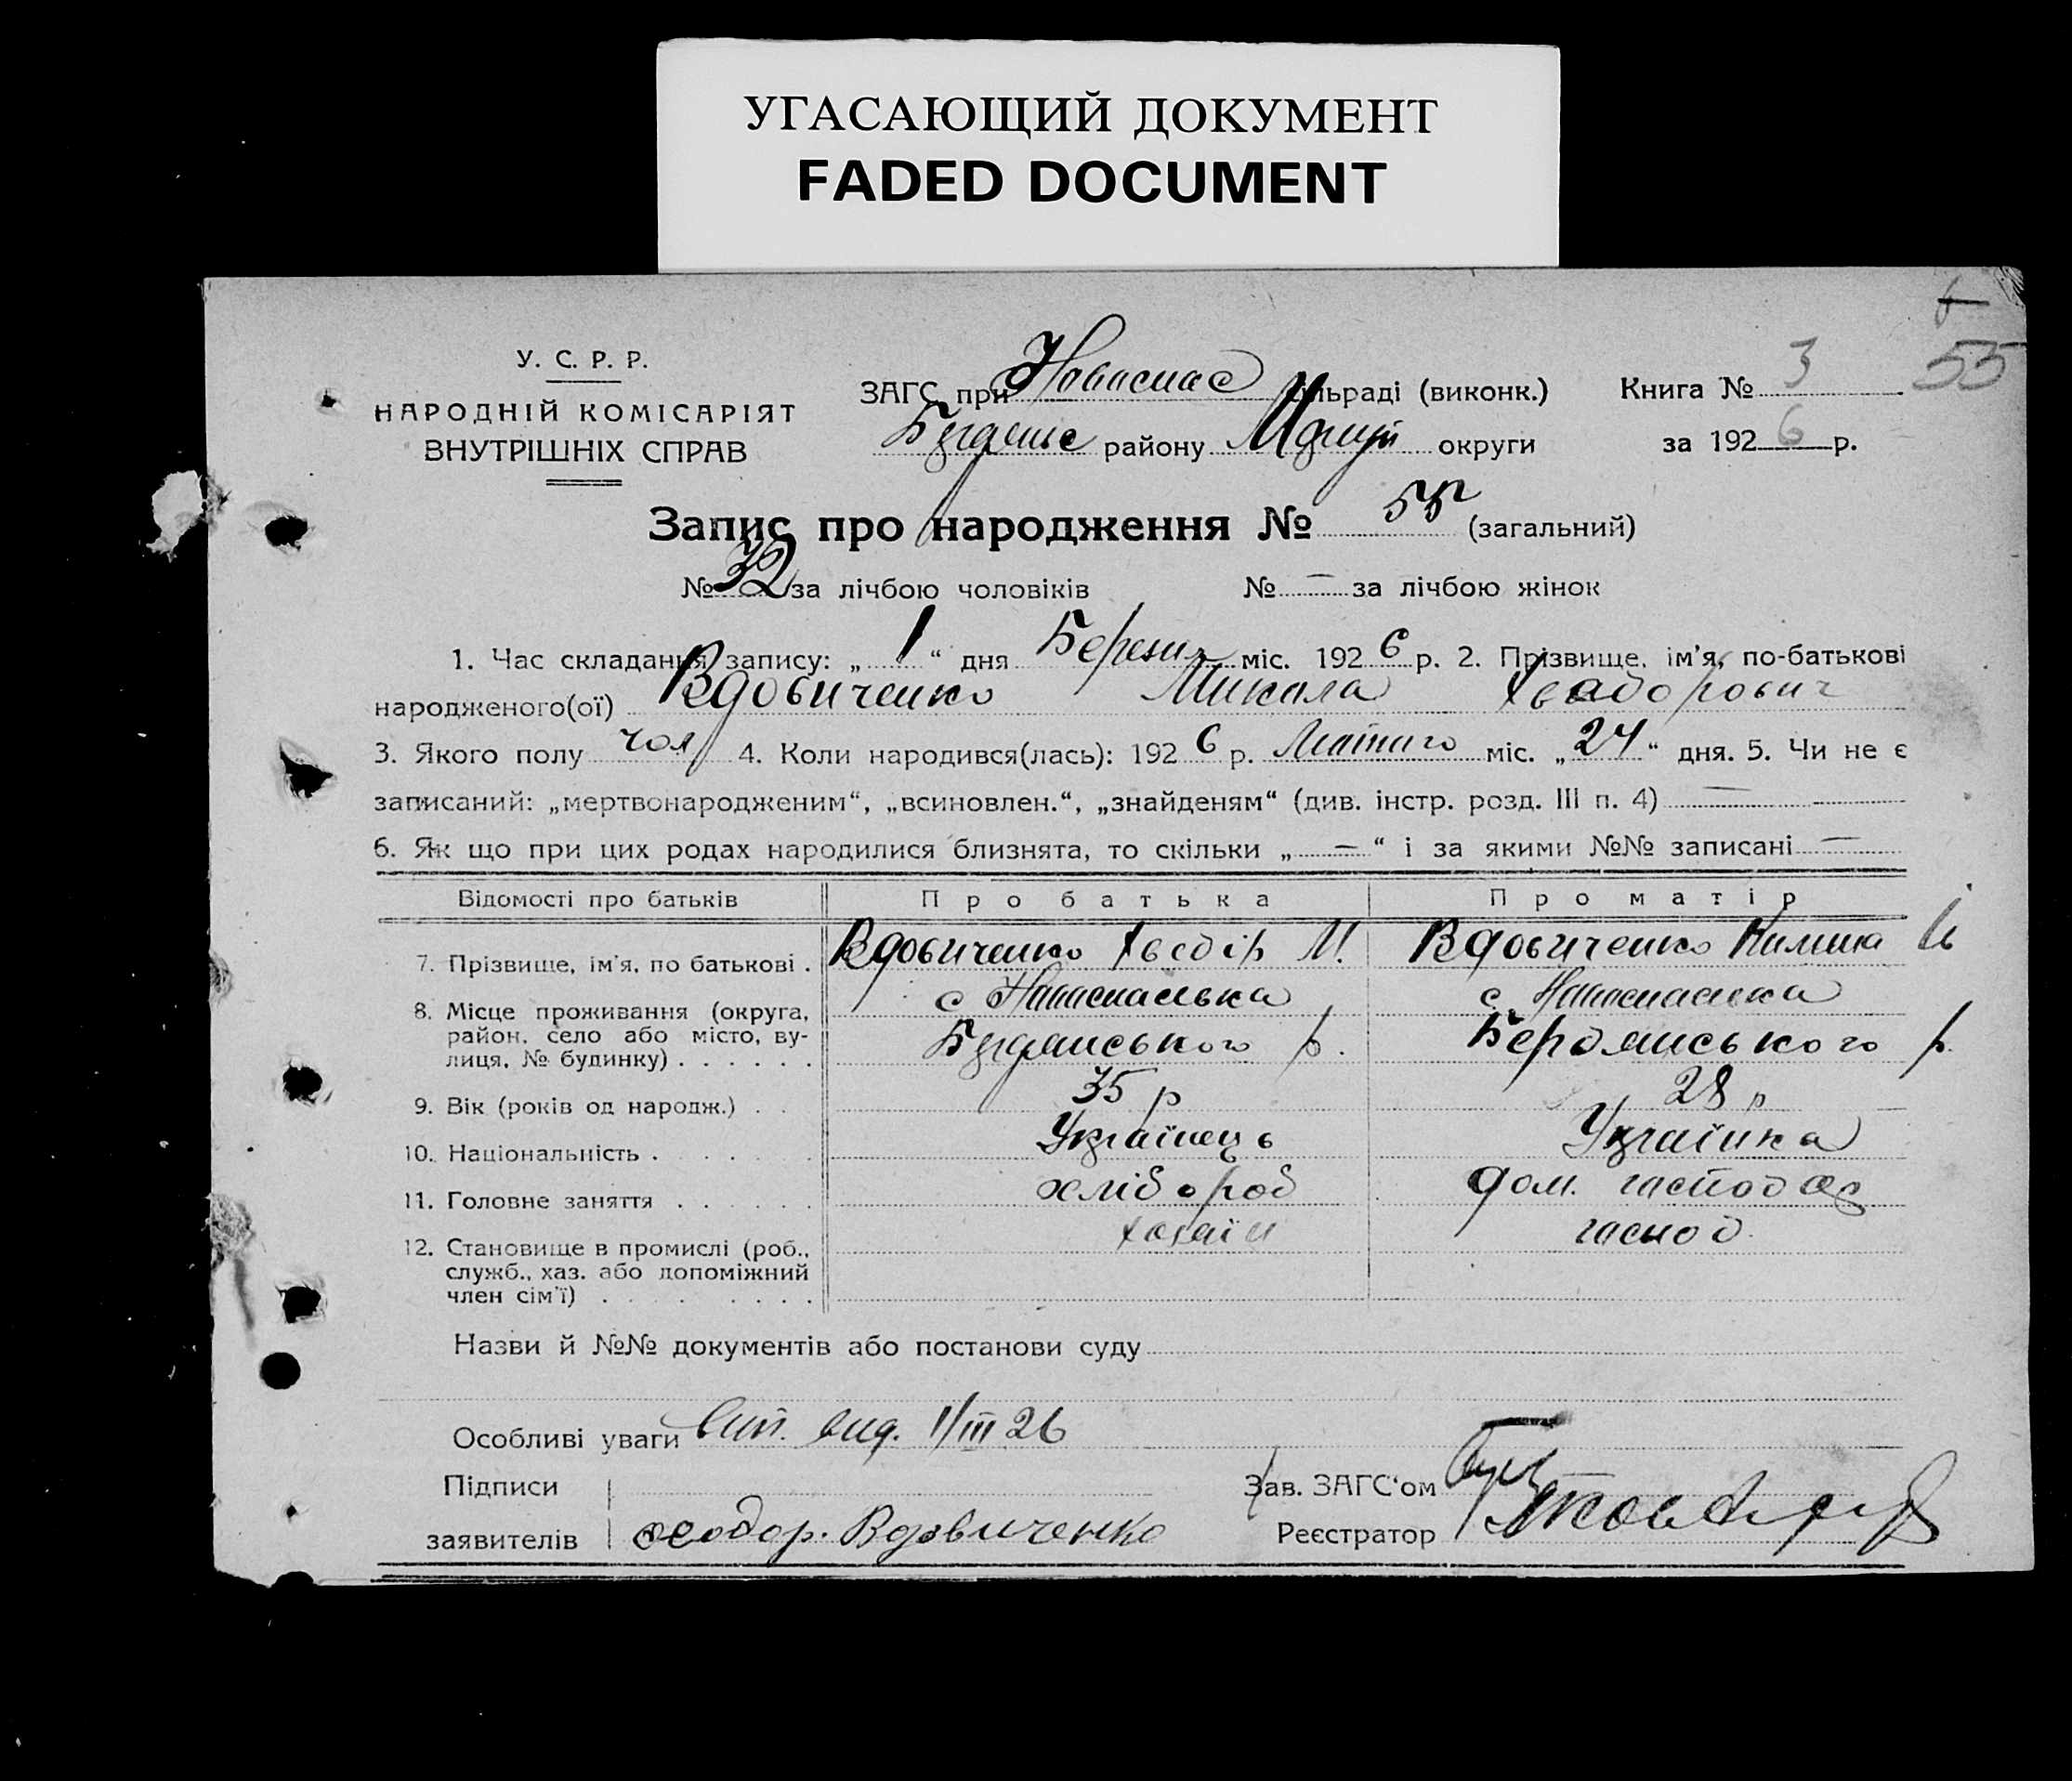 УГАСАЮЩИЙ ДОКУМЕНТ
FADED DOCUMENT
55
У. С. Р. Р.
НАРОДНІЙ КОМІСАРІЯТ
ВНУТРІШНІХ СПРАВ
ЗАГС при Новоспас сільраді (виконк.)
району округи
Книга № 3
за 1926 р.
Запис про народження № 55 (загальний)
№ 32 за лічбою чоловіків № — за лічбою жінок
1. Час складання запису: „ 1 “ дня Березня міс. 1926 р. 2. Прізвище, ім'я, по-батькові
народженого(ої) Вдовиченко Микола Хведорович
3. Якого полу чол 4. Коли народився(лась): 1926 р. Лютого міс. „24“ дня. 5. Чи не є
записаний: „мертвонародженим“, „всиновлен.“, „знайденям“ (див. інстр. розд. III п. 4) —
6. Як що при цих родах народилися близнята, то скільки „ — “ і за якими №№ записані —
Відомості про батьків Про батька Про матір
7. Прізвище, ім'я, по батькові . Вдовиченко Хведір М. Вдовиченко
8. Місце проживання (округа, район, село або місто, вулиця, № будинку) . . . . . .
с Новоспасівка с Новоспасівка
Бердянського р. Бердянського р.
9. Вік (років од народж.) . . 35 р 28 р
10. Національність . . . . . Українець Українка
11. Головне заняття . . . . . . хлібороб дом. господар
12. Становище в промислі (роб., служб., хаз. або допоміжний член сім'ї) . . . . . . . .
хазаїн
Назви й №№ документів або постанови суду
Особливі уваги вид. 1/III 26
Підписи
заявителів Вдовиченко
Зав. ЗАГС'ом
Реєстратор